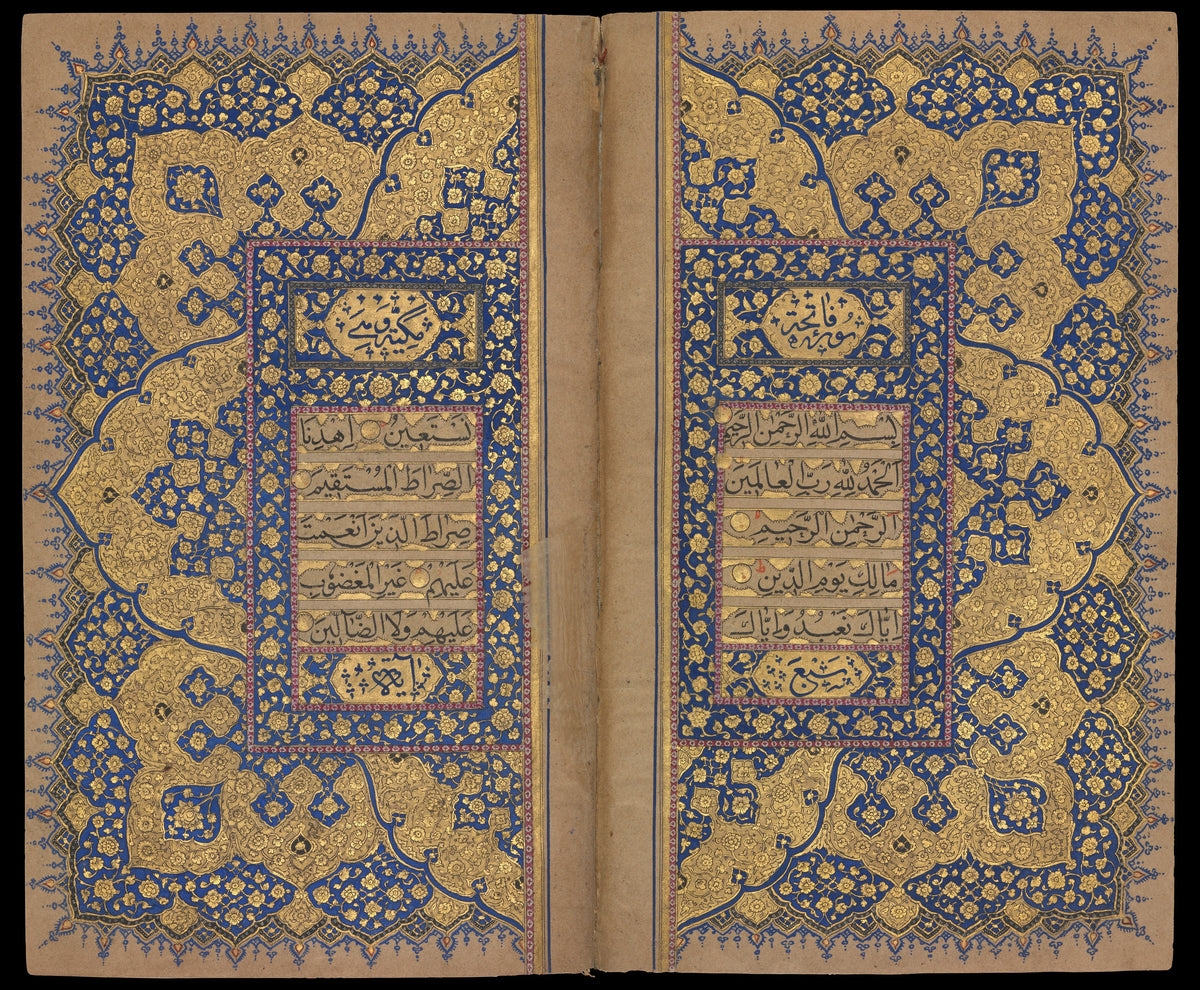 سورة فاتحة
بِسْمِ اللّٰهِ الرَّحْمٰنِ الرَّحِيمِ
اَلْحَمْدُ لِلّٰهِ رَبِّ الْعَالَمِينَ
الرَّحْمٰنِ الرَّحِيمِ
مَالِكِ يَوْمِ الدِّينِ
اِيَّاكَ نَعْبُدُ وَاِيَّاكَ
سبع
مكية وهي
نَسْتَعِينُ اِهْدِنَا
الصِّرَاطَ الْمُسْتَقِيمَ
صِرَاطَ الَّذِينَ اَنْعَمْتَ
عَلَيْهِمْ غَيْرِ الْمَغْضُوبِ
عَلَيْهِمْ وَلَا الضَّآلِّينَ